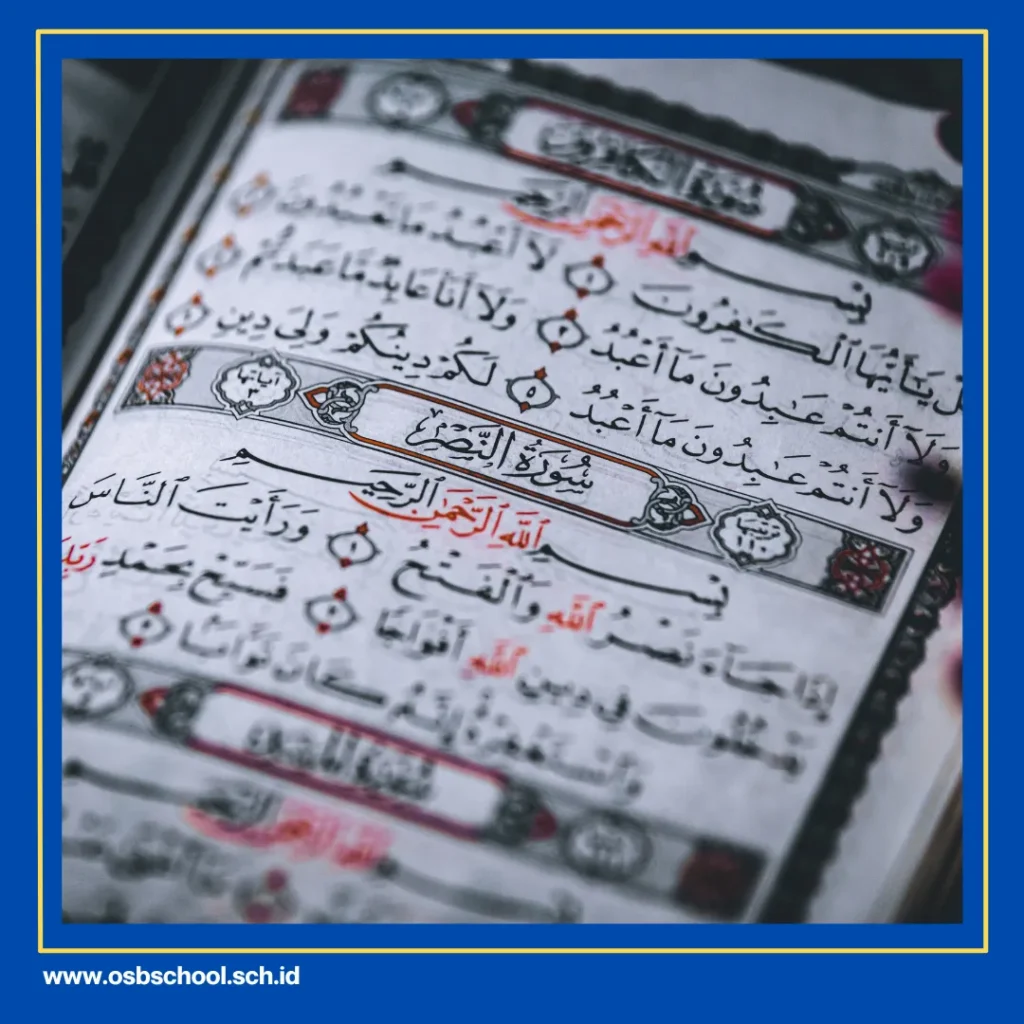 سُورَةُ الكَافِرُونَ
بِسْمِ ٱللَّهِ ٱلرَّحْمَٰنِ ٱلرَّحِيمِ
يَٰٓأَيُّهَا ٱلْكَٰفِرُونَ ١ لَآ أَعْبُدُ مَا تَعْبُدُونَ
وَلَآ أَنتُمْ عَٰبِدُونَ مَآ أَعْبُدُ ٣ وَلَآ أَنَا۠ عَابِدٌ مَّا عَبَدتُّمْ
وَلَآ أَنتُمْ عَٰبِدُونَ مَآ أَعْبُدُ ٥ لَكُمْ دِينُكُمْ وَلِيَ دِينِ ٦
ترتيبها ١١٠ سُورَةُ النَّصْرِ آياتها ٣
بِسْمِ ٱللَّهِ ٱلرَّحْمَٰنِ ٱلرَّحِيمِ
إِذَا جَآءَ نَصْرُ ٱللَّهِ وَٱلْفَتْحُ ١ وَرَأَيْتَ ٱلنَّاسَ
يَدْخُلُونَ فِى دِينِ ٱللَّهِ أَفْوَاجًا ٢ فَسَبِّحْ بِحَمْدِ رَبِّكَ
وَٱسْتَغْفِرْهُ إِنَّهُۥ كَانَ تَوَّابًۢا ٣
www.osbschool.sch.id